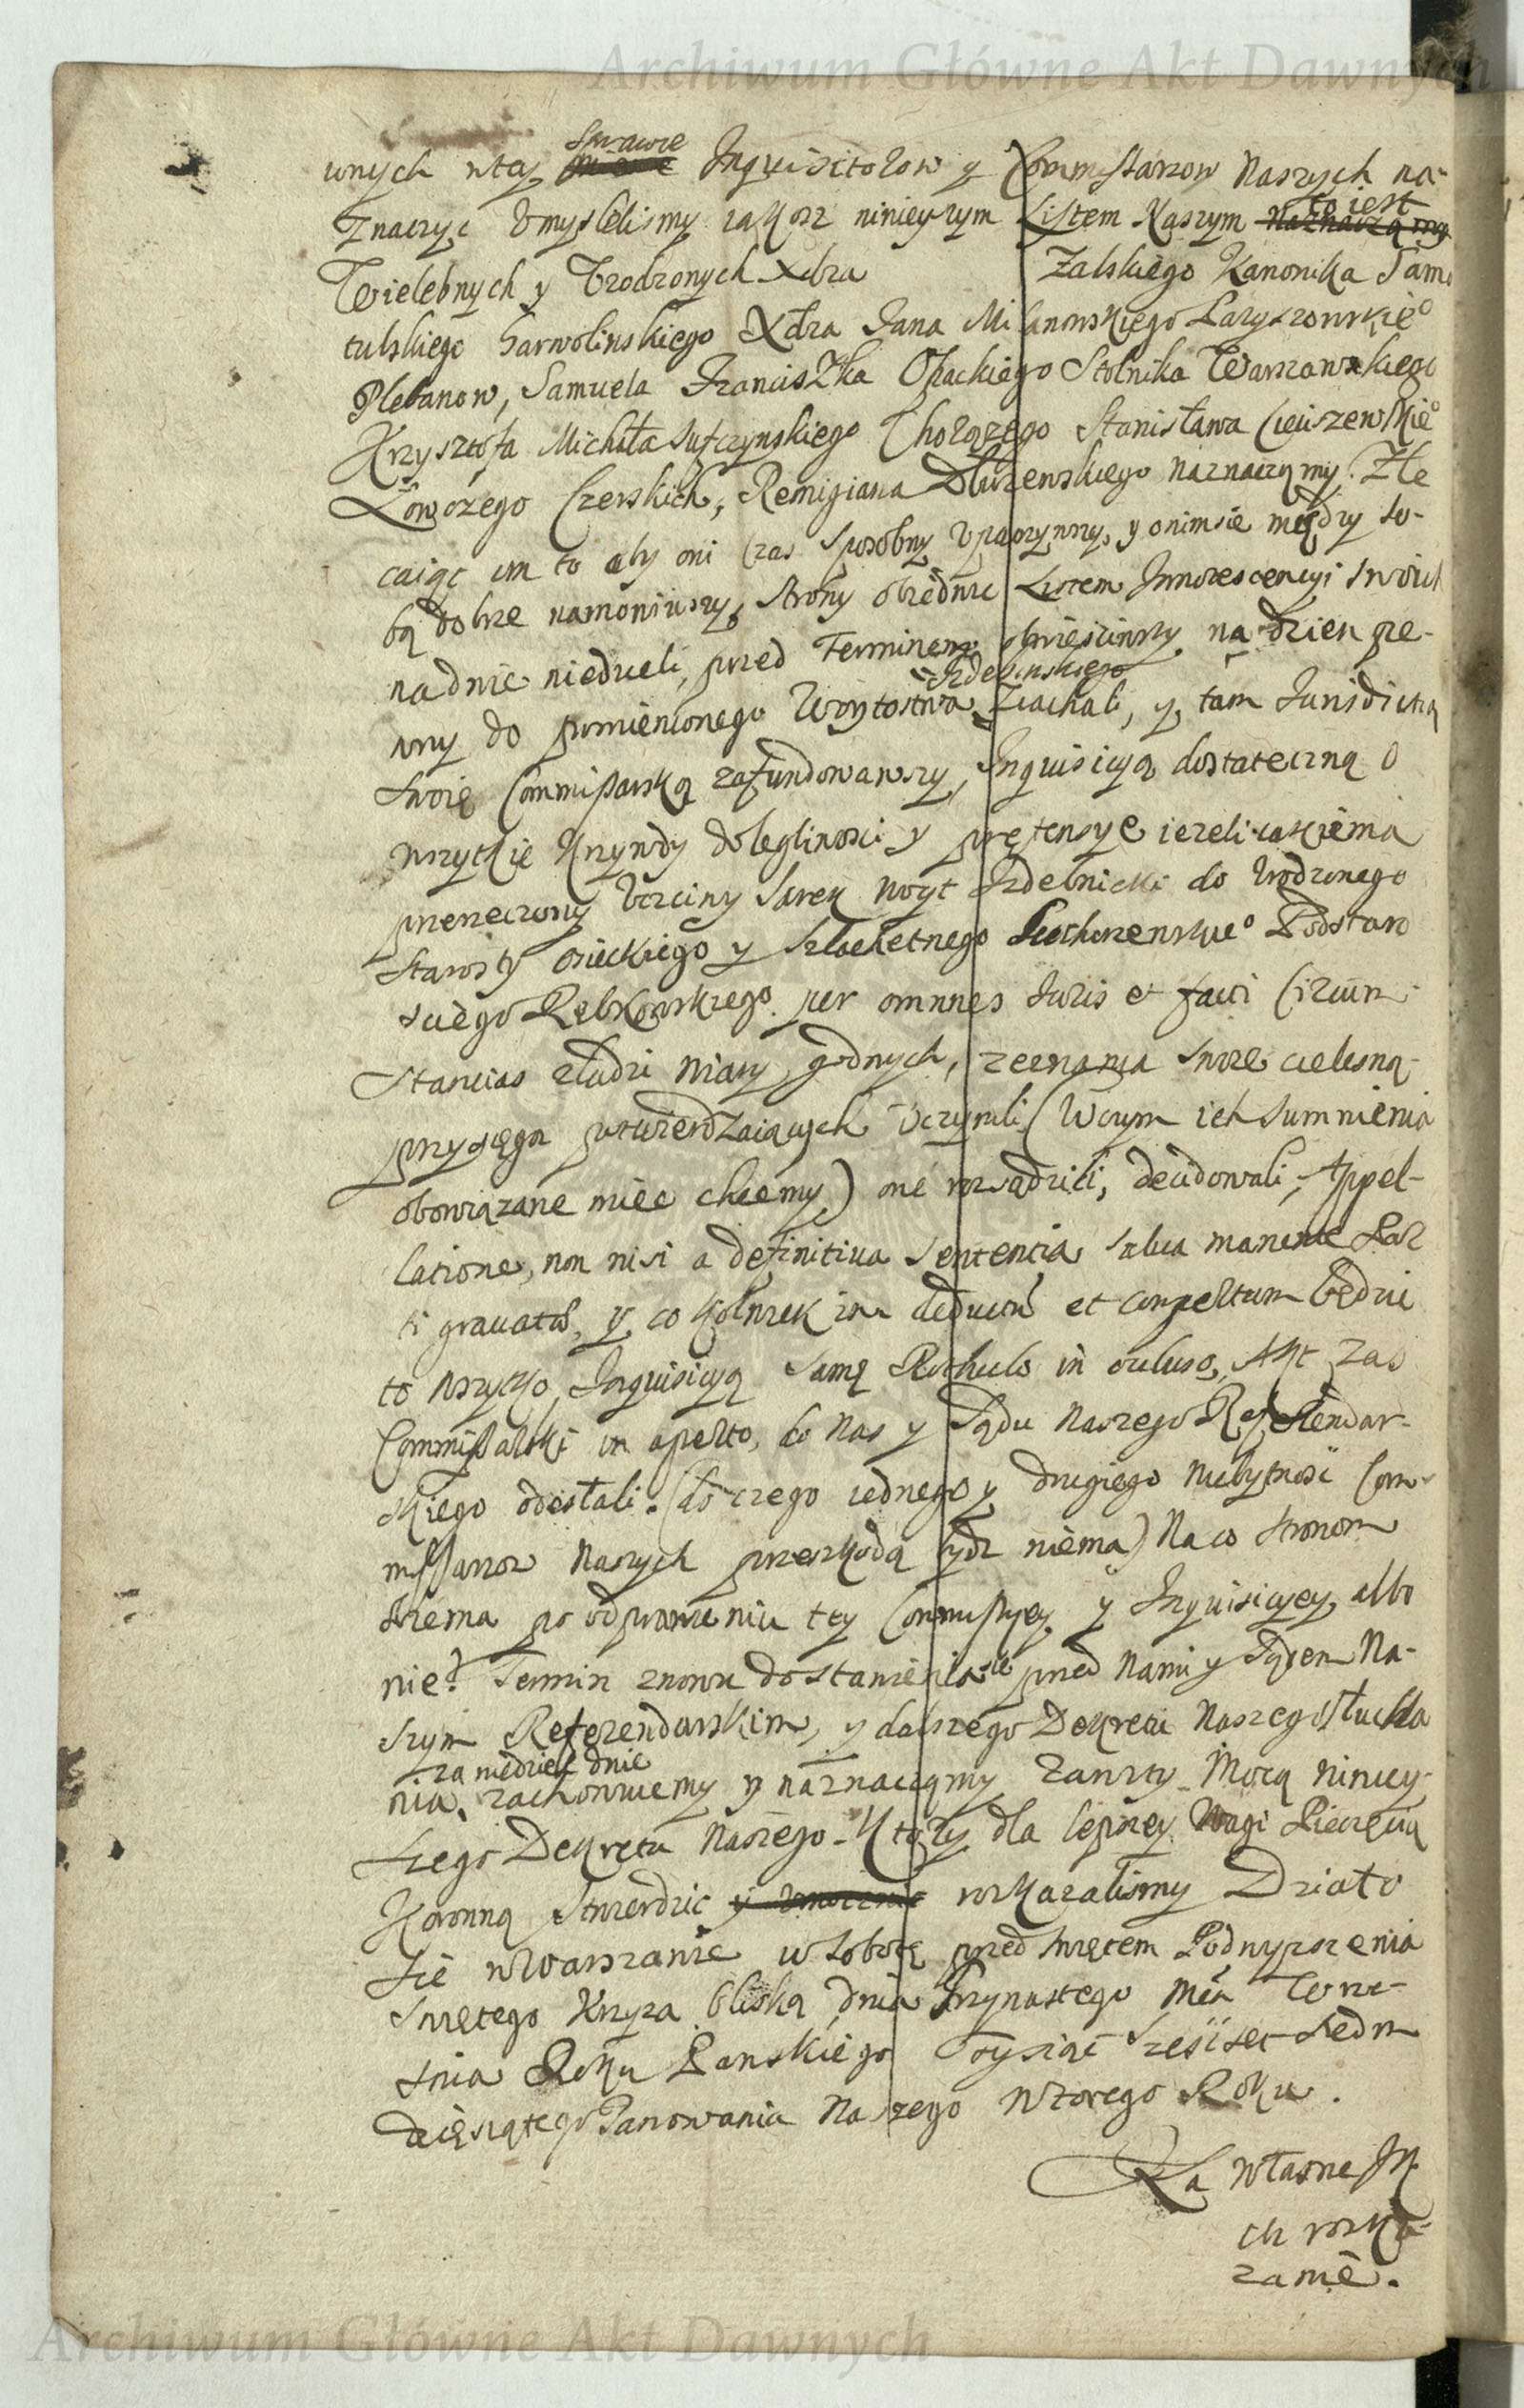 Archiwum Główne Akt Dawnych
wnych wtey sprawie Inquisitorow y Commissarzow Naszych na-
znaczyc Vmyslelismy iakosz ninieyszym Listem Naszym to iest
Wielebnych y Vrodzonych Xdza Zalskiego Kanonika
tulskiego Garwolinskiego Xdza Jana Milanowskiego Laryszowskie°
Plebanow, Samuela Franciszka Opackiego Stolnika Warszawskiego
Krzysztofa Michała Suffczynskiego Chorązego Stanisława Cieciszewskie°
Łowczego Czerskich, Remigiana Dłuzewskiego naznaczamy. Zle
caiąc im to aby oni czas sposobny vpatrzywszy, y onimsie między so-
bą dobrze namowiwszy, Strony obiedwie Listem Innotescencyi swoich
nadwie niedzieli, przed Terminem obwiesciwszy na dzien pe-
wny do pomienionego Woytostwa Zdelinskiego Ziachali, y tam Jurisdictią
swoię Commissarską zafundowawszy, Inquisicyą dostateczną o
wszytkie Krzywdy dolegliwosci y pretensye iezeli iakie ma
przerzeczony Vczciwy Sarek Woyt Zdelnicki do Vrodzonego
Starosty osieckiego y szlachetnego Podstaro
sciego Rębkowskiego per omnes Juris et facti Circum-
stancias zludzi wiary godnych, zeznania swoie cielesną
przysięgą potwierdzaiących Vczynili (Wczym ich sumnienia
obowiązane miec chcemy) one rozsądzili, decidowali, Appel-
latione, non nisi a definitiua Sententia salua manente Par
ti grauatæ, y co kolwiek in deductum et compertum będzie
to wszytko Inquisicyą samę Rothulo in cluso, Akt zas
Commissarski in aperto, do Nas y Sądu Naszego Referendar-
skiego odesłali. (do czego iednego y drugiego niebytnosc Com-
missarzow Naszych przeszkodą bydz niema) Naco stronom
obiema po odprawieniu tey Commissyey y Inquisicyey, albo
nie? Termin znowu do stawienia sie przed Nami y Sądem Na-
szym Referendarskim, y dalszego Dekretu Naszego słucha
nia za niedziel dwie zachowuiemy y naznaczamy Zawity Mocą niniey-
szego Dekretu Naszego. Ktory dla lepszey Wagi Pieczęcią
Koronną stwierdzic rozkazalismy Działo
sie wWarszawie wSobotę przed swiętem Podwyzszenia
Swiętego Krzyza bliską dnia Trzynastego Mca Wrze-
snia Roku Panskiego Tysiąc Szescset Siedm
dziesiątego Panowania Naszego Wtorego Roku.
Za własne JK
ch roska-
zanie.
Archiwum Główne Akt Dawnych